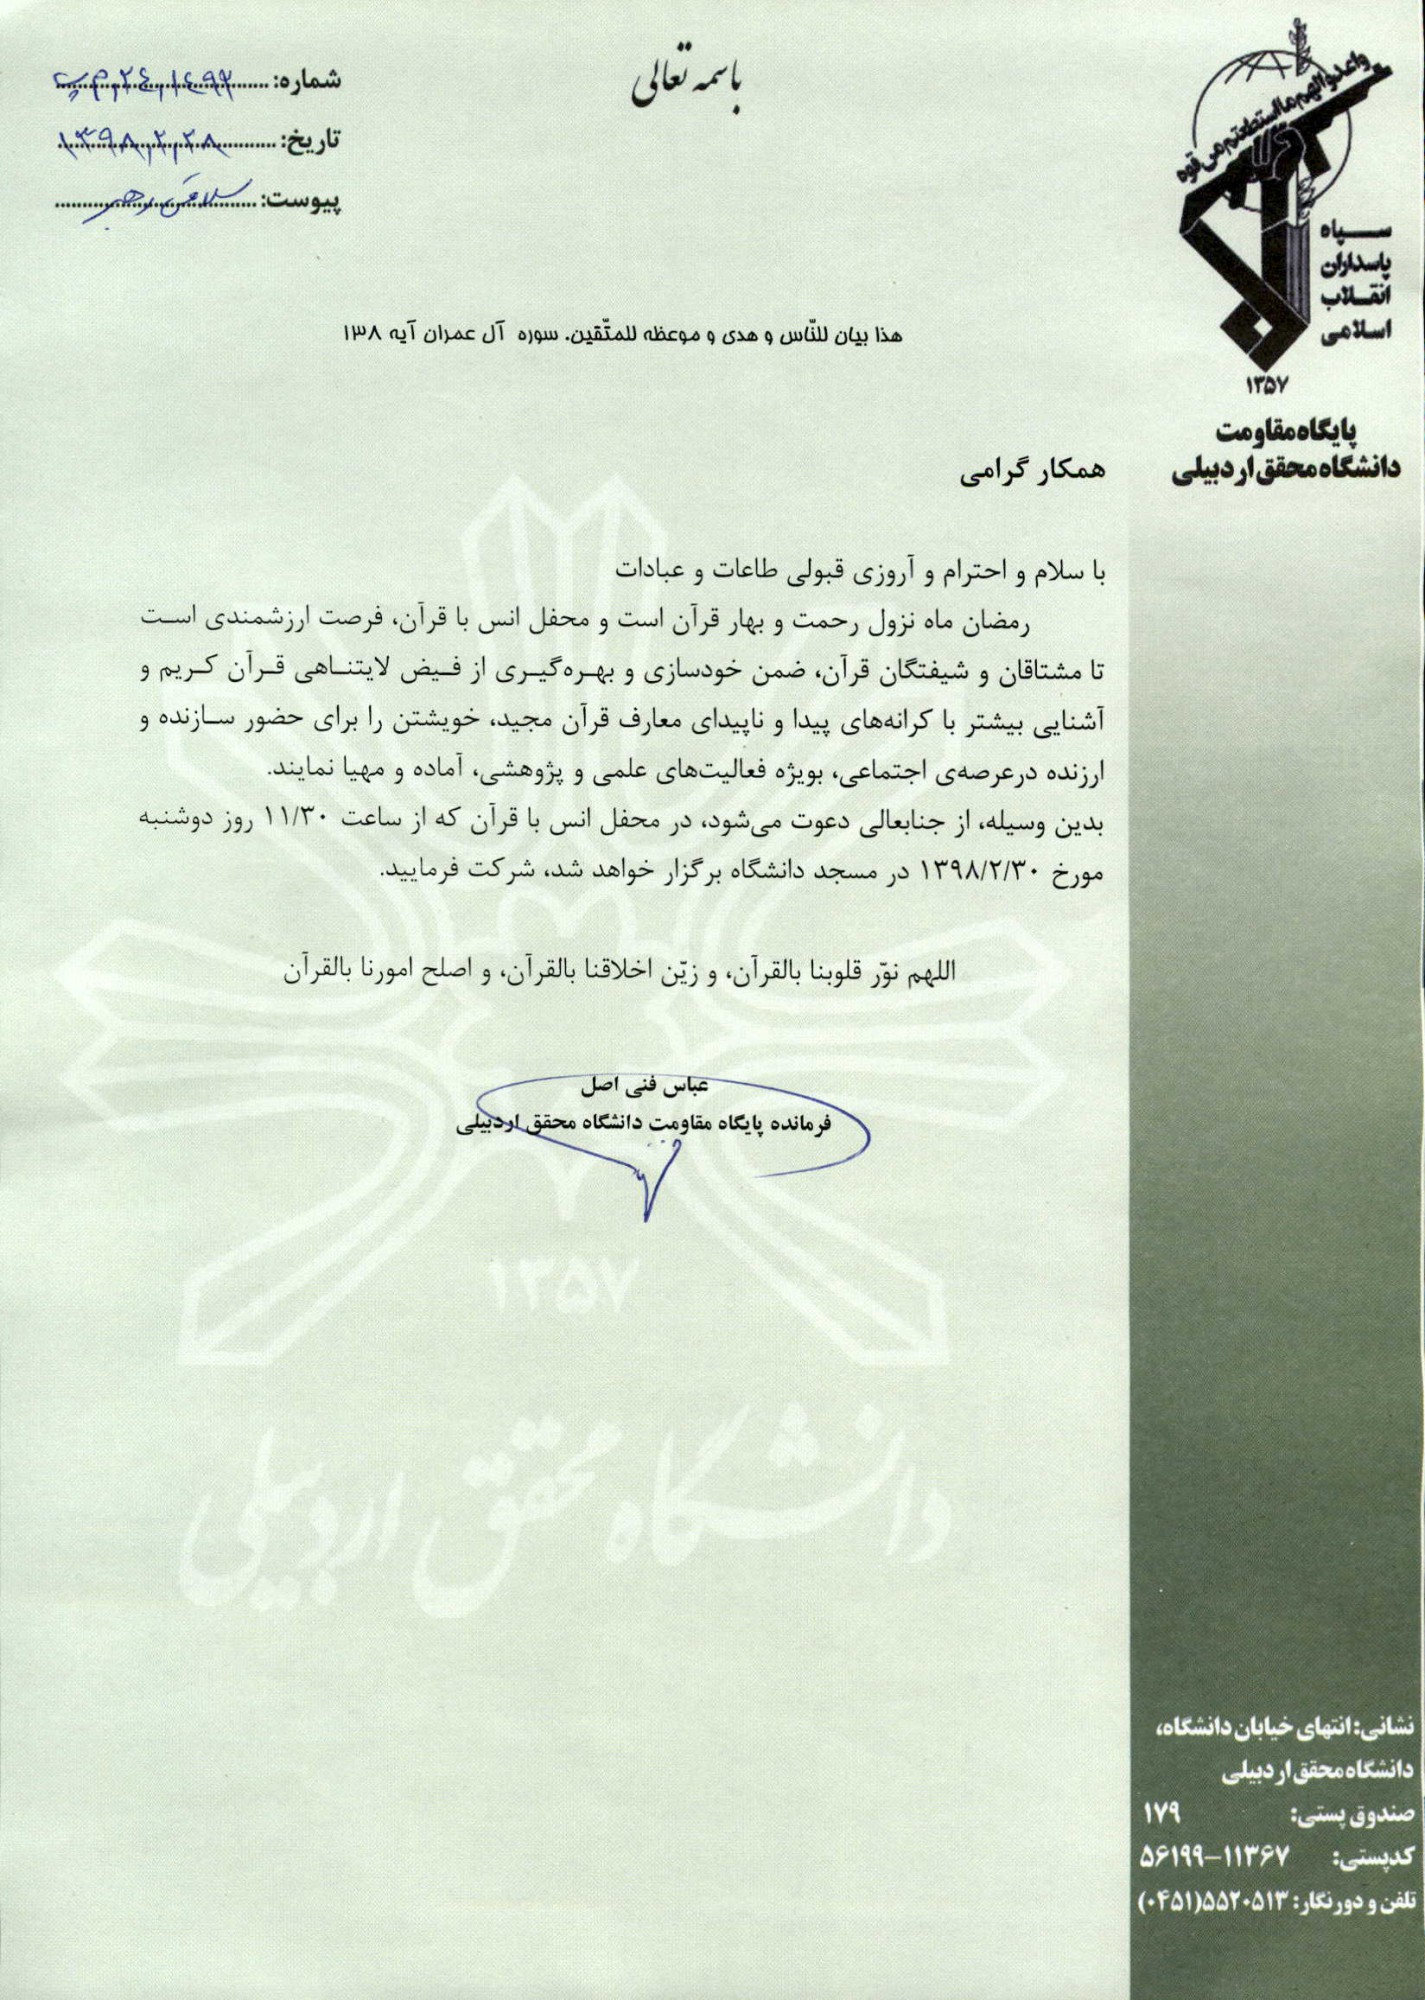 باسمه تعالی
شماره:
تاریخ: ۱۳۹۸,۲,۲۸
پیوست: سلامتی رهبر
واعدوا لهم ما استطعتم من قوه
سپاه
پاسداران
انقلاب
اسلامی
۱۳۵۷
پایگاه مقاومت
دانشگاه محقق اردبیلی
هذا بیان للنّاس و هدی و موعظه للمتّقین. سوره آل عمران آیه ۱۳۸
همکار گرامی
با سلام و احترام و آروزی قبولی طاعات و عبادات
رمضان ماه نزول رحمت و بهار قرآن است و محفل انس با قرآن، فرصت ارزشمندی است
تا مشتاقان و شیفتگان قرآن، ضمن خودسازی و بهره‌گیری از فیض لایتناهی قرآن کریم و
آشنایی بیشتر با کرانه‌های پیدا و ناپیدای معارف قرآن مجید، خویشتن را برای حضور سازنده و
ارزنده درعرصه‌ی اجتماعی، بویژه فعالیت‌های علمی و پژوهشی، آماده و مهیا نمایند.
بدین وسیله، از جنابعالی دعوت می‌شود، در محفل انس با قرآن که از ساعت ۱۱/۳۰ روز دوشنبه
مورخ ۱۳۹۸/۲/۳۰ در مسجد دانشگاه برگزار خواهد شد، شرکت فرمایید.
اللهم نوّر قلوبنا بالقرآن، و زیّن اخلاقنا بالقرآن، و اصلح امورنا بالقرآن
عباس فنی اصل
فرمانده پایگاه مقاومت دانشگاه محقق اردبیلی
۱۳۵۷
دانشگاه محقق اردبیلی
نشانی: انتهای خیابان دانشگاه،
دانشگاه محقق اردبیلی
صندوق پستی: ۱۷۹
کدپستی: ۱۱۳۶۷–۵۶۱۹۹
تلفن و دورنگار: ۵۵۲۰۵۱۳(۰۴۵۱)